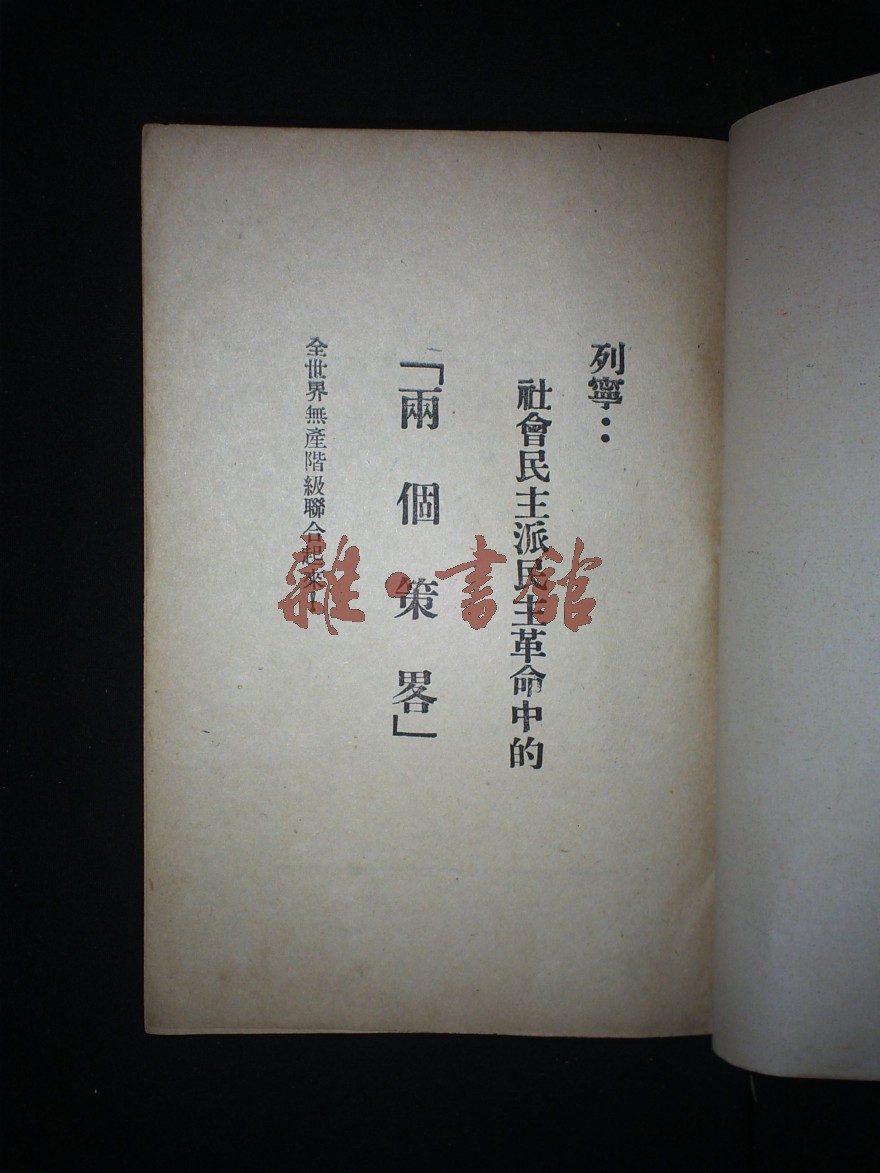 列寧：
社會民主派民主革命中的
「兩個策畧」
全世界無產階級聯合起來！
雜·書館